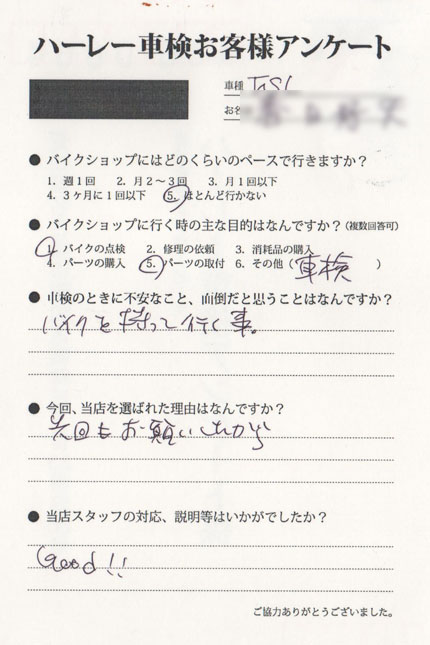 ハーレー車検お客様アンケート
車種
お名
● バイクショップにはどのくらいのペースで行きますか？
1. 週1回 2. 月2～3回 3. 月1回以下
4. 3ヶ月に1回以下 5. ほとんど行かない
● バイクショップに行く時の主な目的はなんですか？(複数回答可)
1. バイクの点検 2. 修理の依頼 3. 消耗品の購入
4. パーツの購入 5. パーツの取付 6. その他（車検）
● 車検のときに不安なこと、面倒だと思うことはなんですか？
バイクを持って行く事。
● 今回、当店を選ばれた理由はなんですか？
前回もお願いしたから
● 当店スタッフの対応、説明等はいかがでしたか？
Good!!
ご協力ありがとうございました。